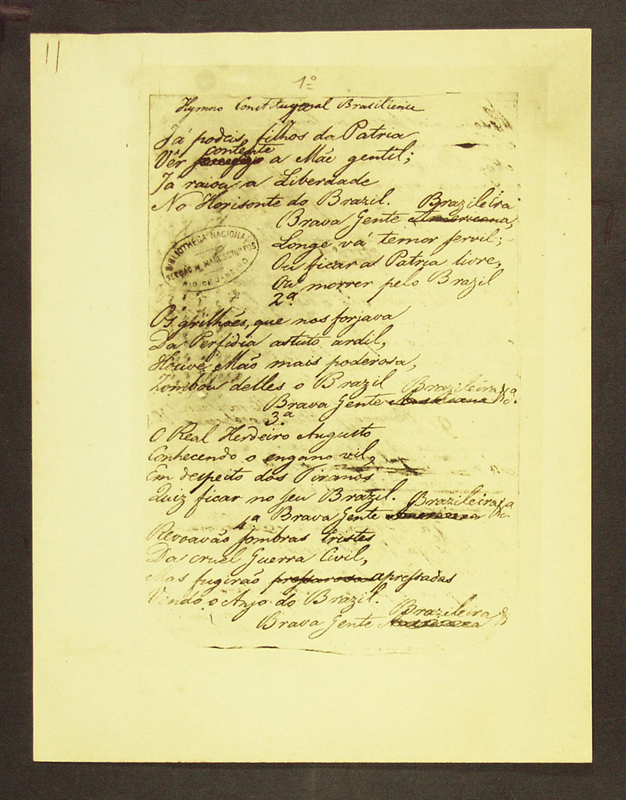 11
1º
Hymno Constitucional Brasiliense
Já podeis, filhos da Patria
contente
Vêr a Mãe gentil;
Já raiou a Liberdade
No Horisonte do Brazil.
Brazileira
Brava Gente Americana,
Longe vá temor servil;
Ou ficar a Patria livre,
Ou morrer pelo Brazil
BIBLIOTHECA NACIONAL
SECÇÃO M. MANUSCRIPTOS
RIO DE JANEIRO
2ª
Os grilhões, que nos forjava
Da Perfidia astuto ardil,
Houve Mão mais poderosa,
Zombou delles o Brazil
Brazileira &ª
Brava Gente
3ª
O Real Herdeiro Augusto
Conhecendo o engano vil,
Em despeito dos Tiranos
Quiz ficar no seu Brazil.
Brazileira &ª
Brava Gente Americana
4ª
Revoavão sombras tristes
Da cruel Guerra Civil,
Mas fugirão apressadas
Vendo o Anjo do Brazil.
Brazileira &
Brava Gente